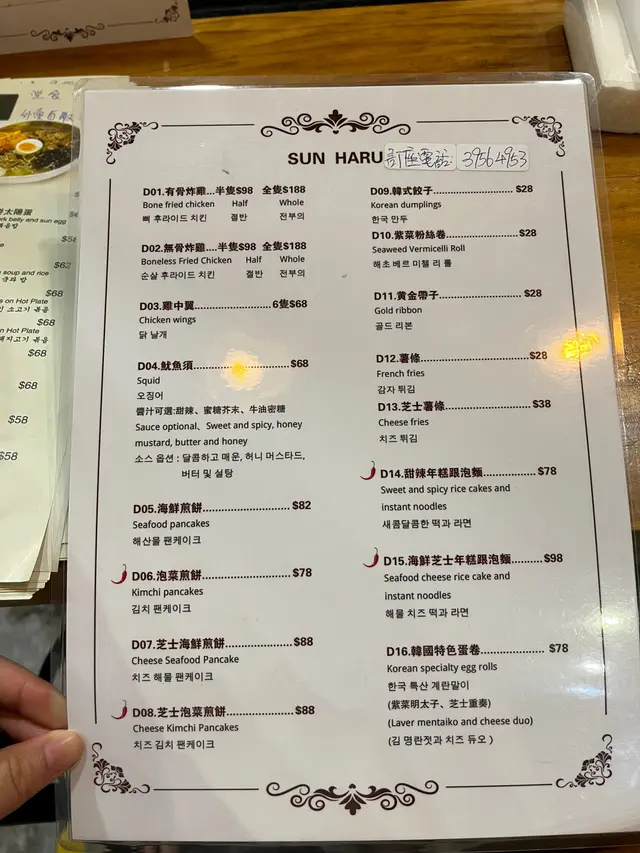 SUN HARU 訂座電話: 3956 4953
D01.有骨炸雞...半隻$98 全隻$188
Bone fried chicken Half Whole
뼈 후라이드 치킨 절반 전부의
D02.無骨炸雞....半隻$98 全隻$188
Boneless Fried Chicken Half Whole
순살 후라이드 치킨 절반 전부의
D03.雞中翼....................6隻$68
Chicken wings
닭 날개
D04.魷魚須.........................$68
Squid
오징어
醬汁可選:甜辣、蜜糖芥末、牛油密糖
Sauce optional、Sweet and spicy, honey
mustard, butter and honey
소스 옵션 : 달콤하고 매운, 허니 머스타드,
버터 및 설탕
D05.海鮮煎餅.......................$82
Seafood pancakes
해산물 팬케이크
D06.泡菜煎餅.......................$78
Kimchi pancakes
김치 팬케이크
D07.芝士海鮮煎餅.................$88
Cheese Seafood Pancake
치즈 해물 팬케이크
D08.芝士泡菜煎餅.................$88
Cheese Kimchi Pancakes
치즈 김치 팬케이크
D09.韓式餃子.....................$28
Korean dumplings
한국 만두
D10.紫菜粉絲卷..................$28
Seaweed Vermicelli Roll
해초 베르 미첼 리 롤
D11.黄金帶子.....................$28
Gold ribbon
골드 리본
D12.薯條...........................$28
French fries
감자 튀김
D13.芝士薯條.....................$38
Cheese fries
치즈 튀김
D14.甜辣年糕跟泡麵.............$78
Sweet and spicy rice cakes and
instant noodles
새콤달콤한 떡과 라면
D15.海鮮芝士年糕跟泡麵........$98
Seafood cheese rice cake and
instant noodles
해물 치즈 떡과 라면
D16.韓國特色蛋卷................ $78
Korean specialty egg rolls
한국 특산 계란말이
(紫菜明太子、芝士重奏)
(Laver mentaiko and cheese duo)
(김 명란젓과 치즈 듀오 )
太陽蛋
belly and sun egg
soup and rice
$62
on Hot Plate
$68
on Hot Plate
$68
$68
$68
$58
$58